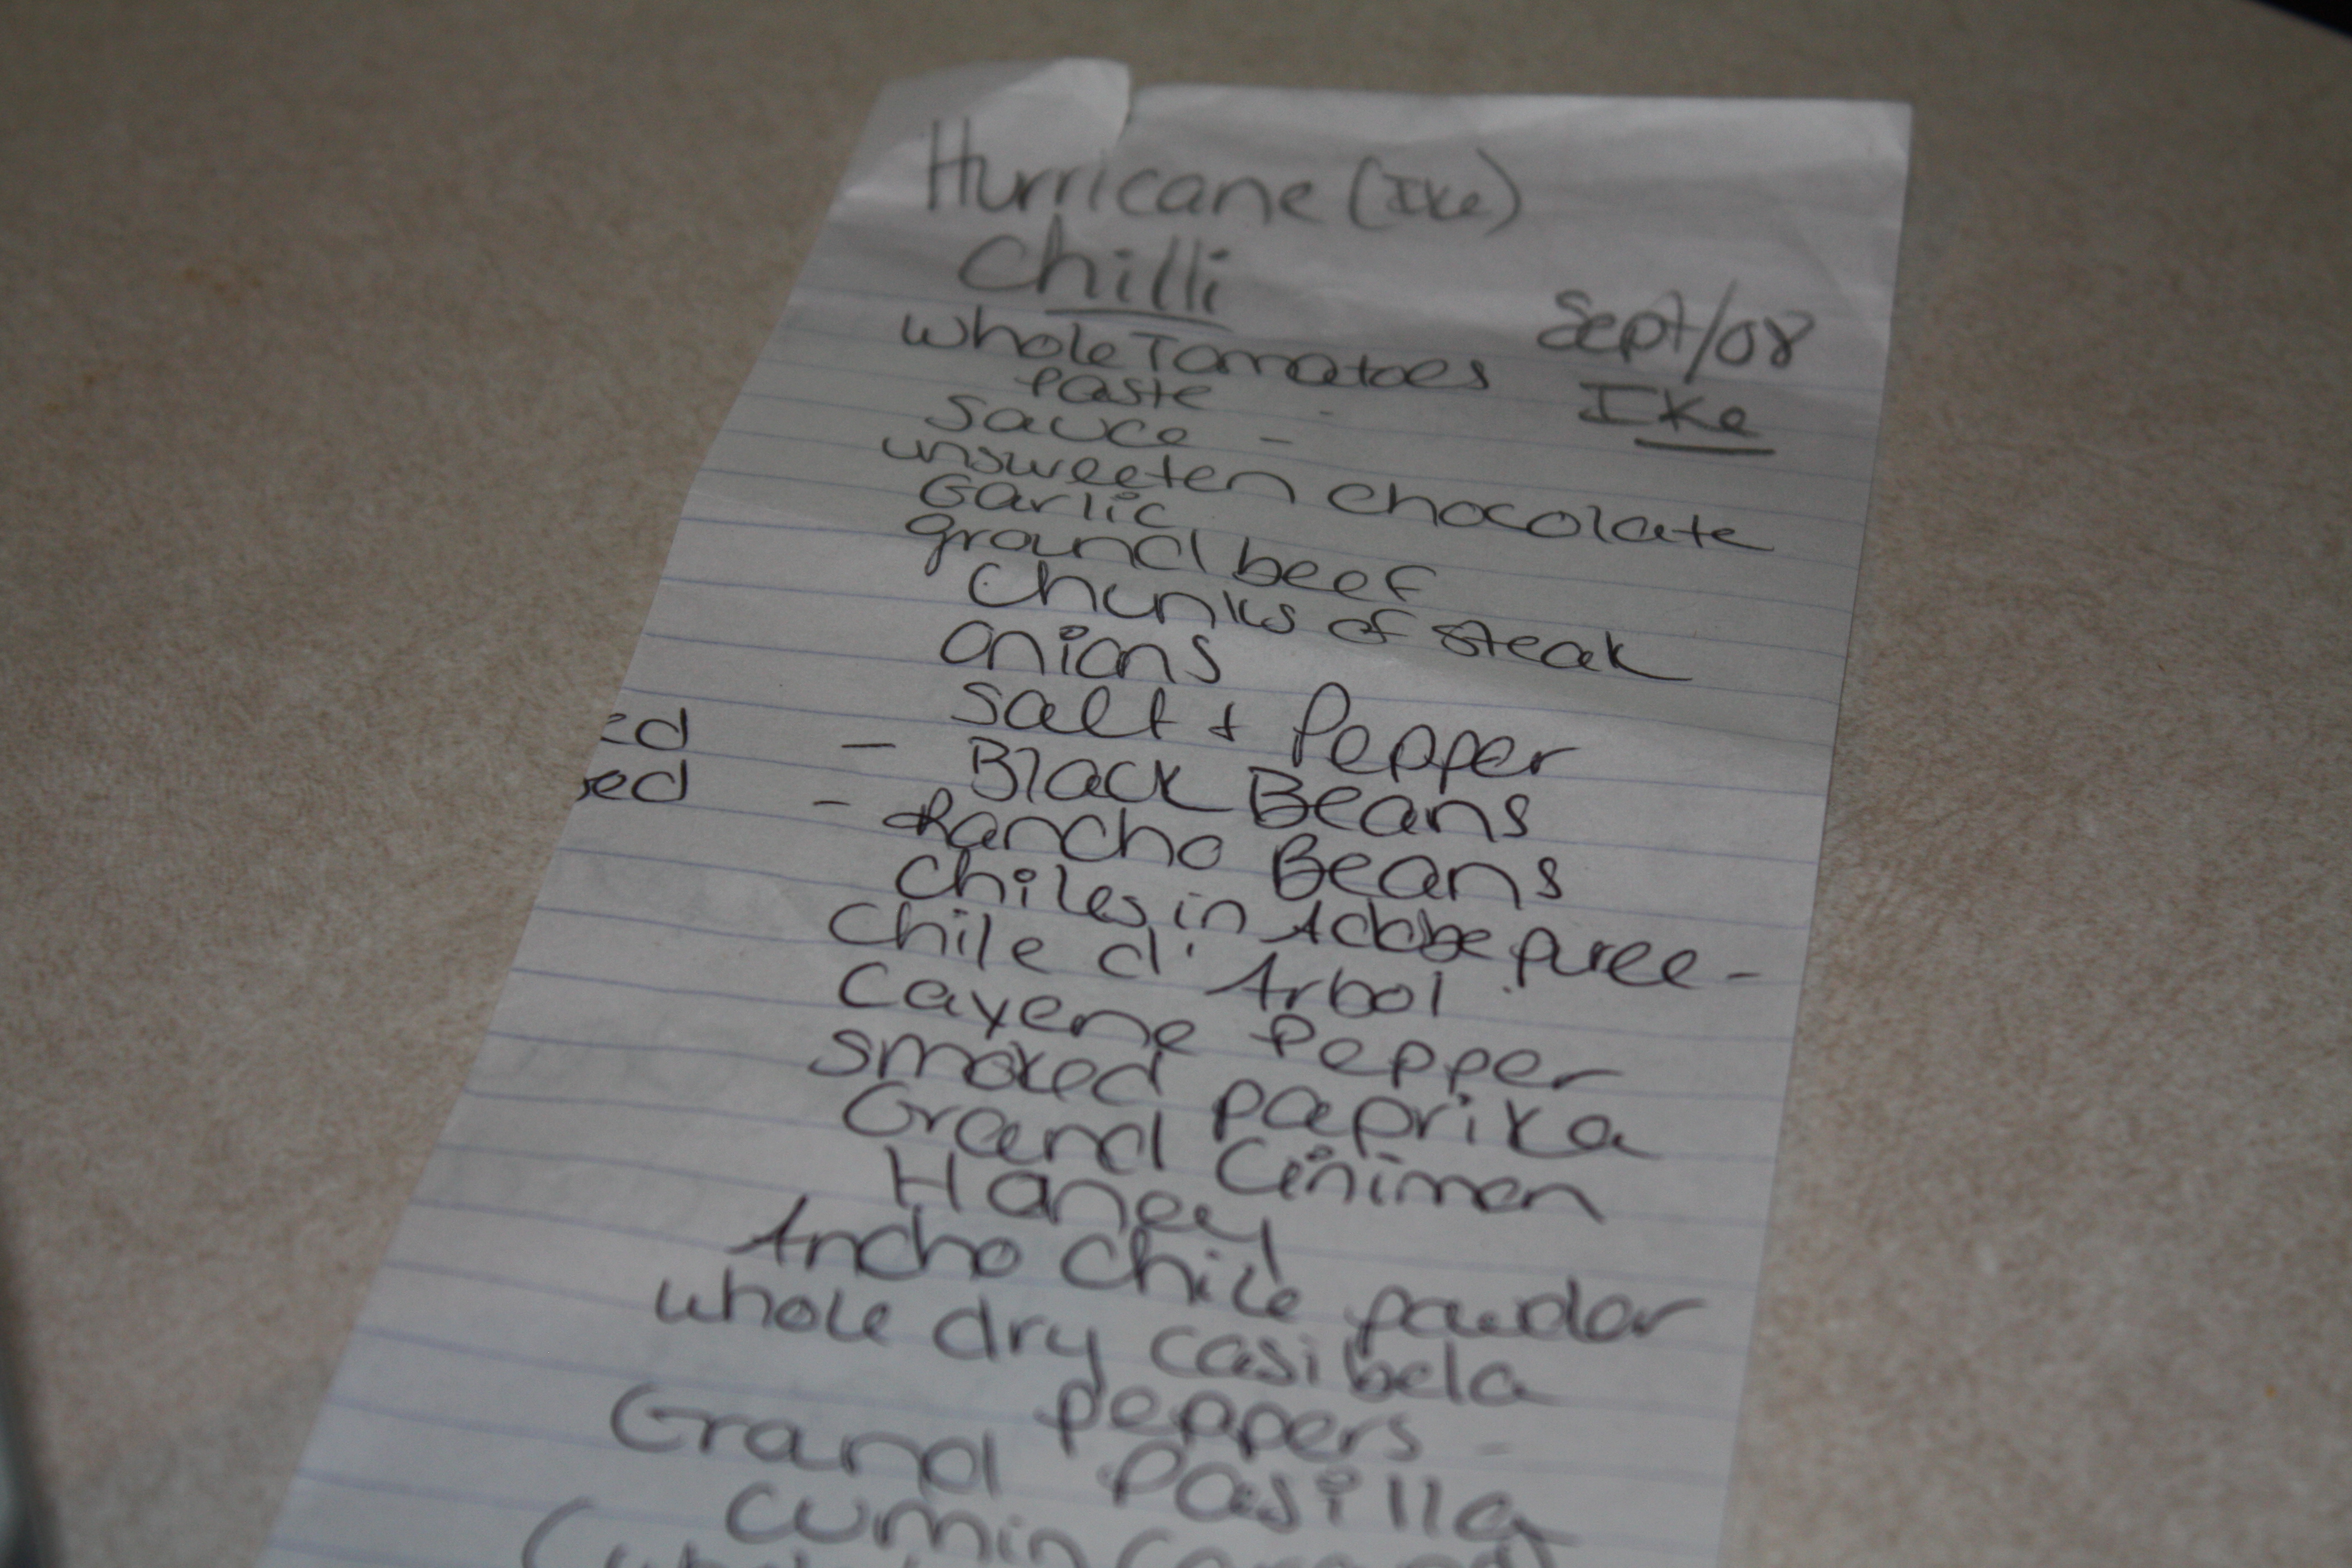 Hurricane (Ike)
Chilli
Sept/08
Ike
whole Tomatoes
paste
Sauce -
unsweeten chocolate
Garlic
ground beef
Chunks of steak
onions
Salt + Pepper
ed - Black Beans
sed - Rancho Beans
Chiles in Adobe puree -
Chile d' Arbol
Cayene Pepper
smoked paprika
Grand Cinimon
Honey
Ancho Chile powdor
whole dry casibela
peppers -
Grand Pasilla
Cumin